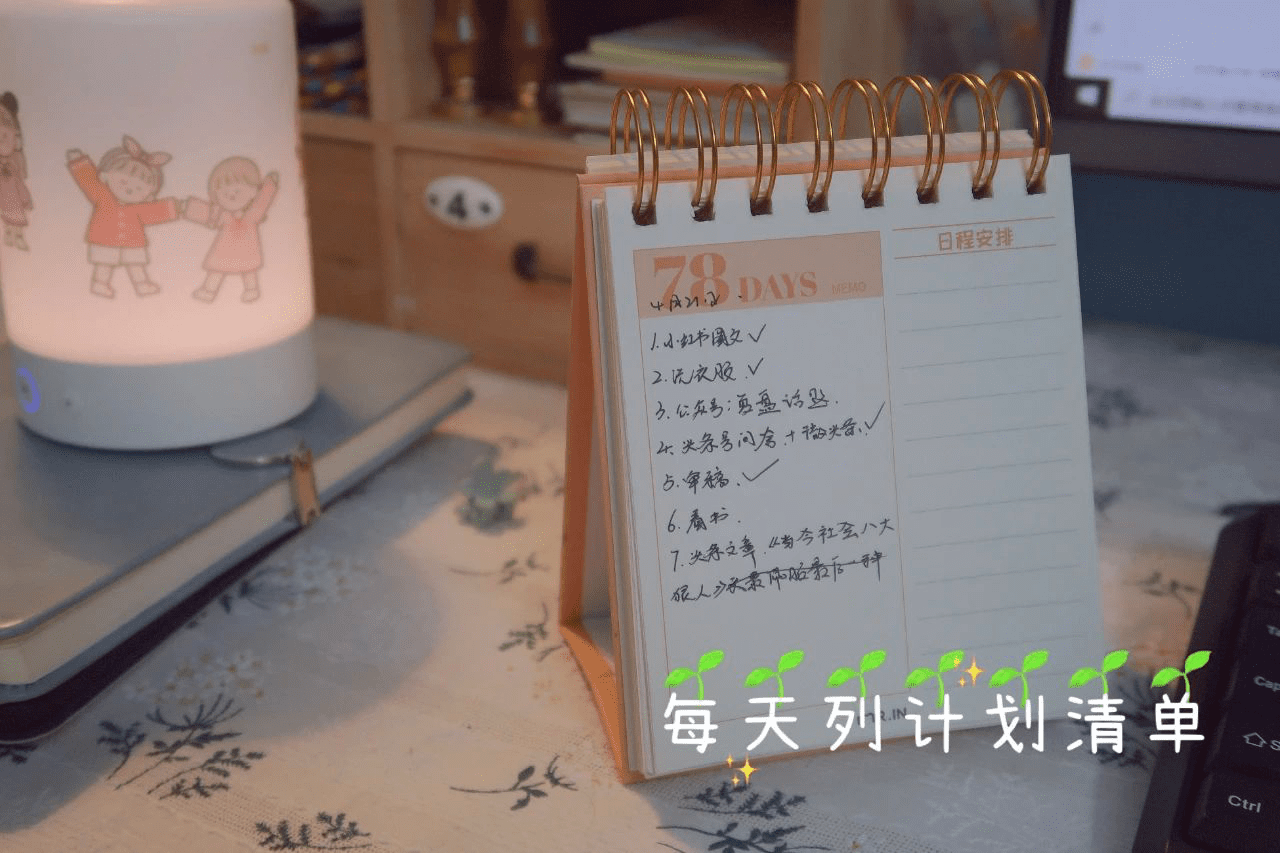 4
78 DAYS MEMO
4月21日
1.小红书图文✓
2.洗衣服.✓
3.公众号:复盘话题.
4.头条号问答.+微头条.✓
5.审稿.✓
6.看书.
7.头条文章.《当今社会八大
狠人》
最后一种
日程安排
每天列计划清单
Ctrl